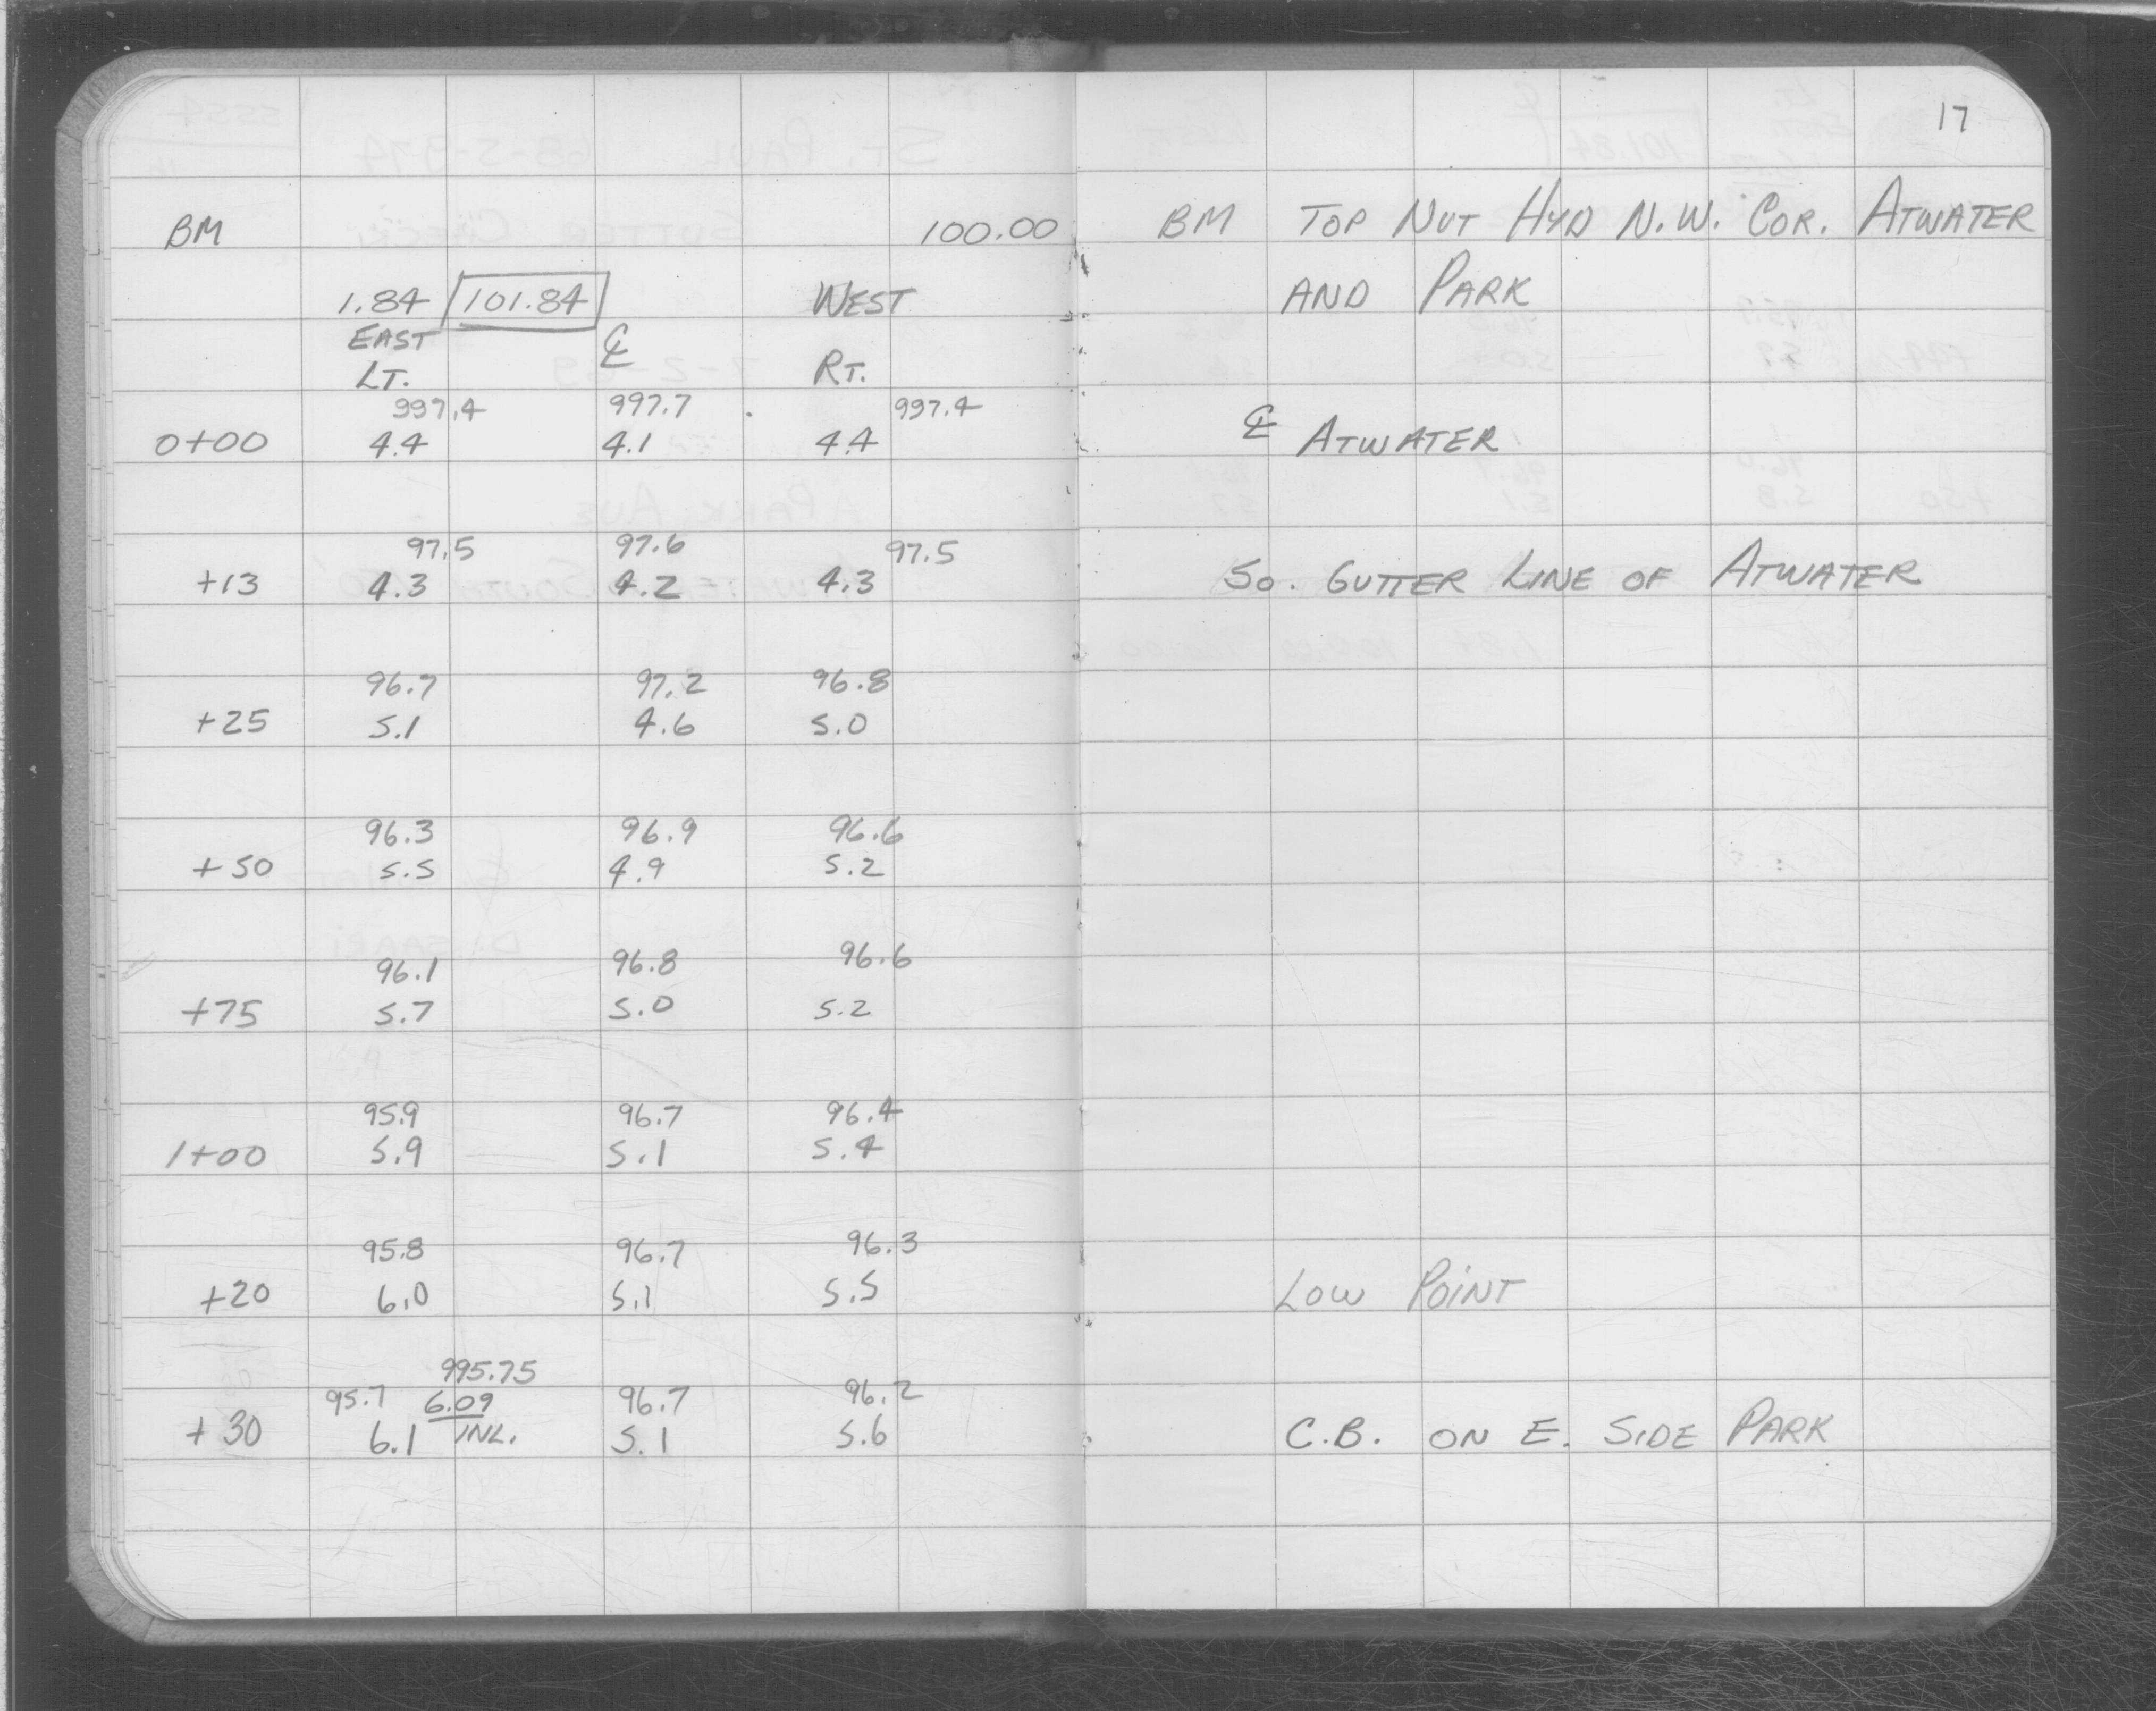 17
BM 100.00 BM TOP NUT HYD N.W. COR. ATWATER
1.84 101.84 WEST AND PARK
EAST ℄
LT. RT.
997.4 997.7 997.4
0+00 4.4 4.1 4.4 ℄ ATWATER
97.5 97.6 97.5
+13 4.3 4.2 4.3 SO. GUTTER LINE OF ATWATER
96.7 97.2 96.8
+25 5.1 4.6 5.0
96.3 96.9 96.6
+50 5.5 4.9 5.2
96.1 96.8 96.6
+75 5.7 5.0 5.2
95.9 96.7 96.4
1+00 5.9 5.1 5.4
95.8 96.7 96.3
+20 6.0 5.1 5.5 LOW POINT
995.75
95.7 6.09 96.7 96.2
+30 6.1 INL. 5.1 5.6 C.B. ON E. SIDE PARK